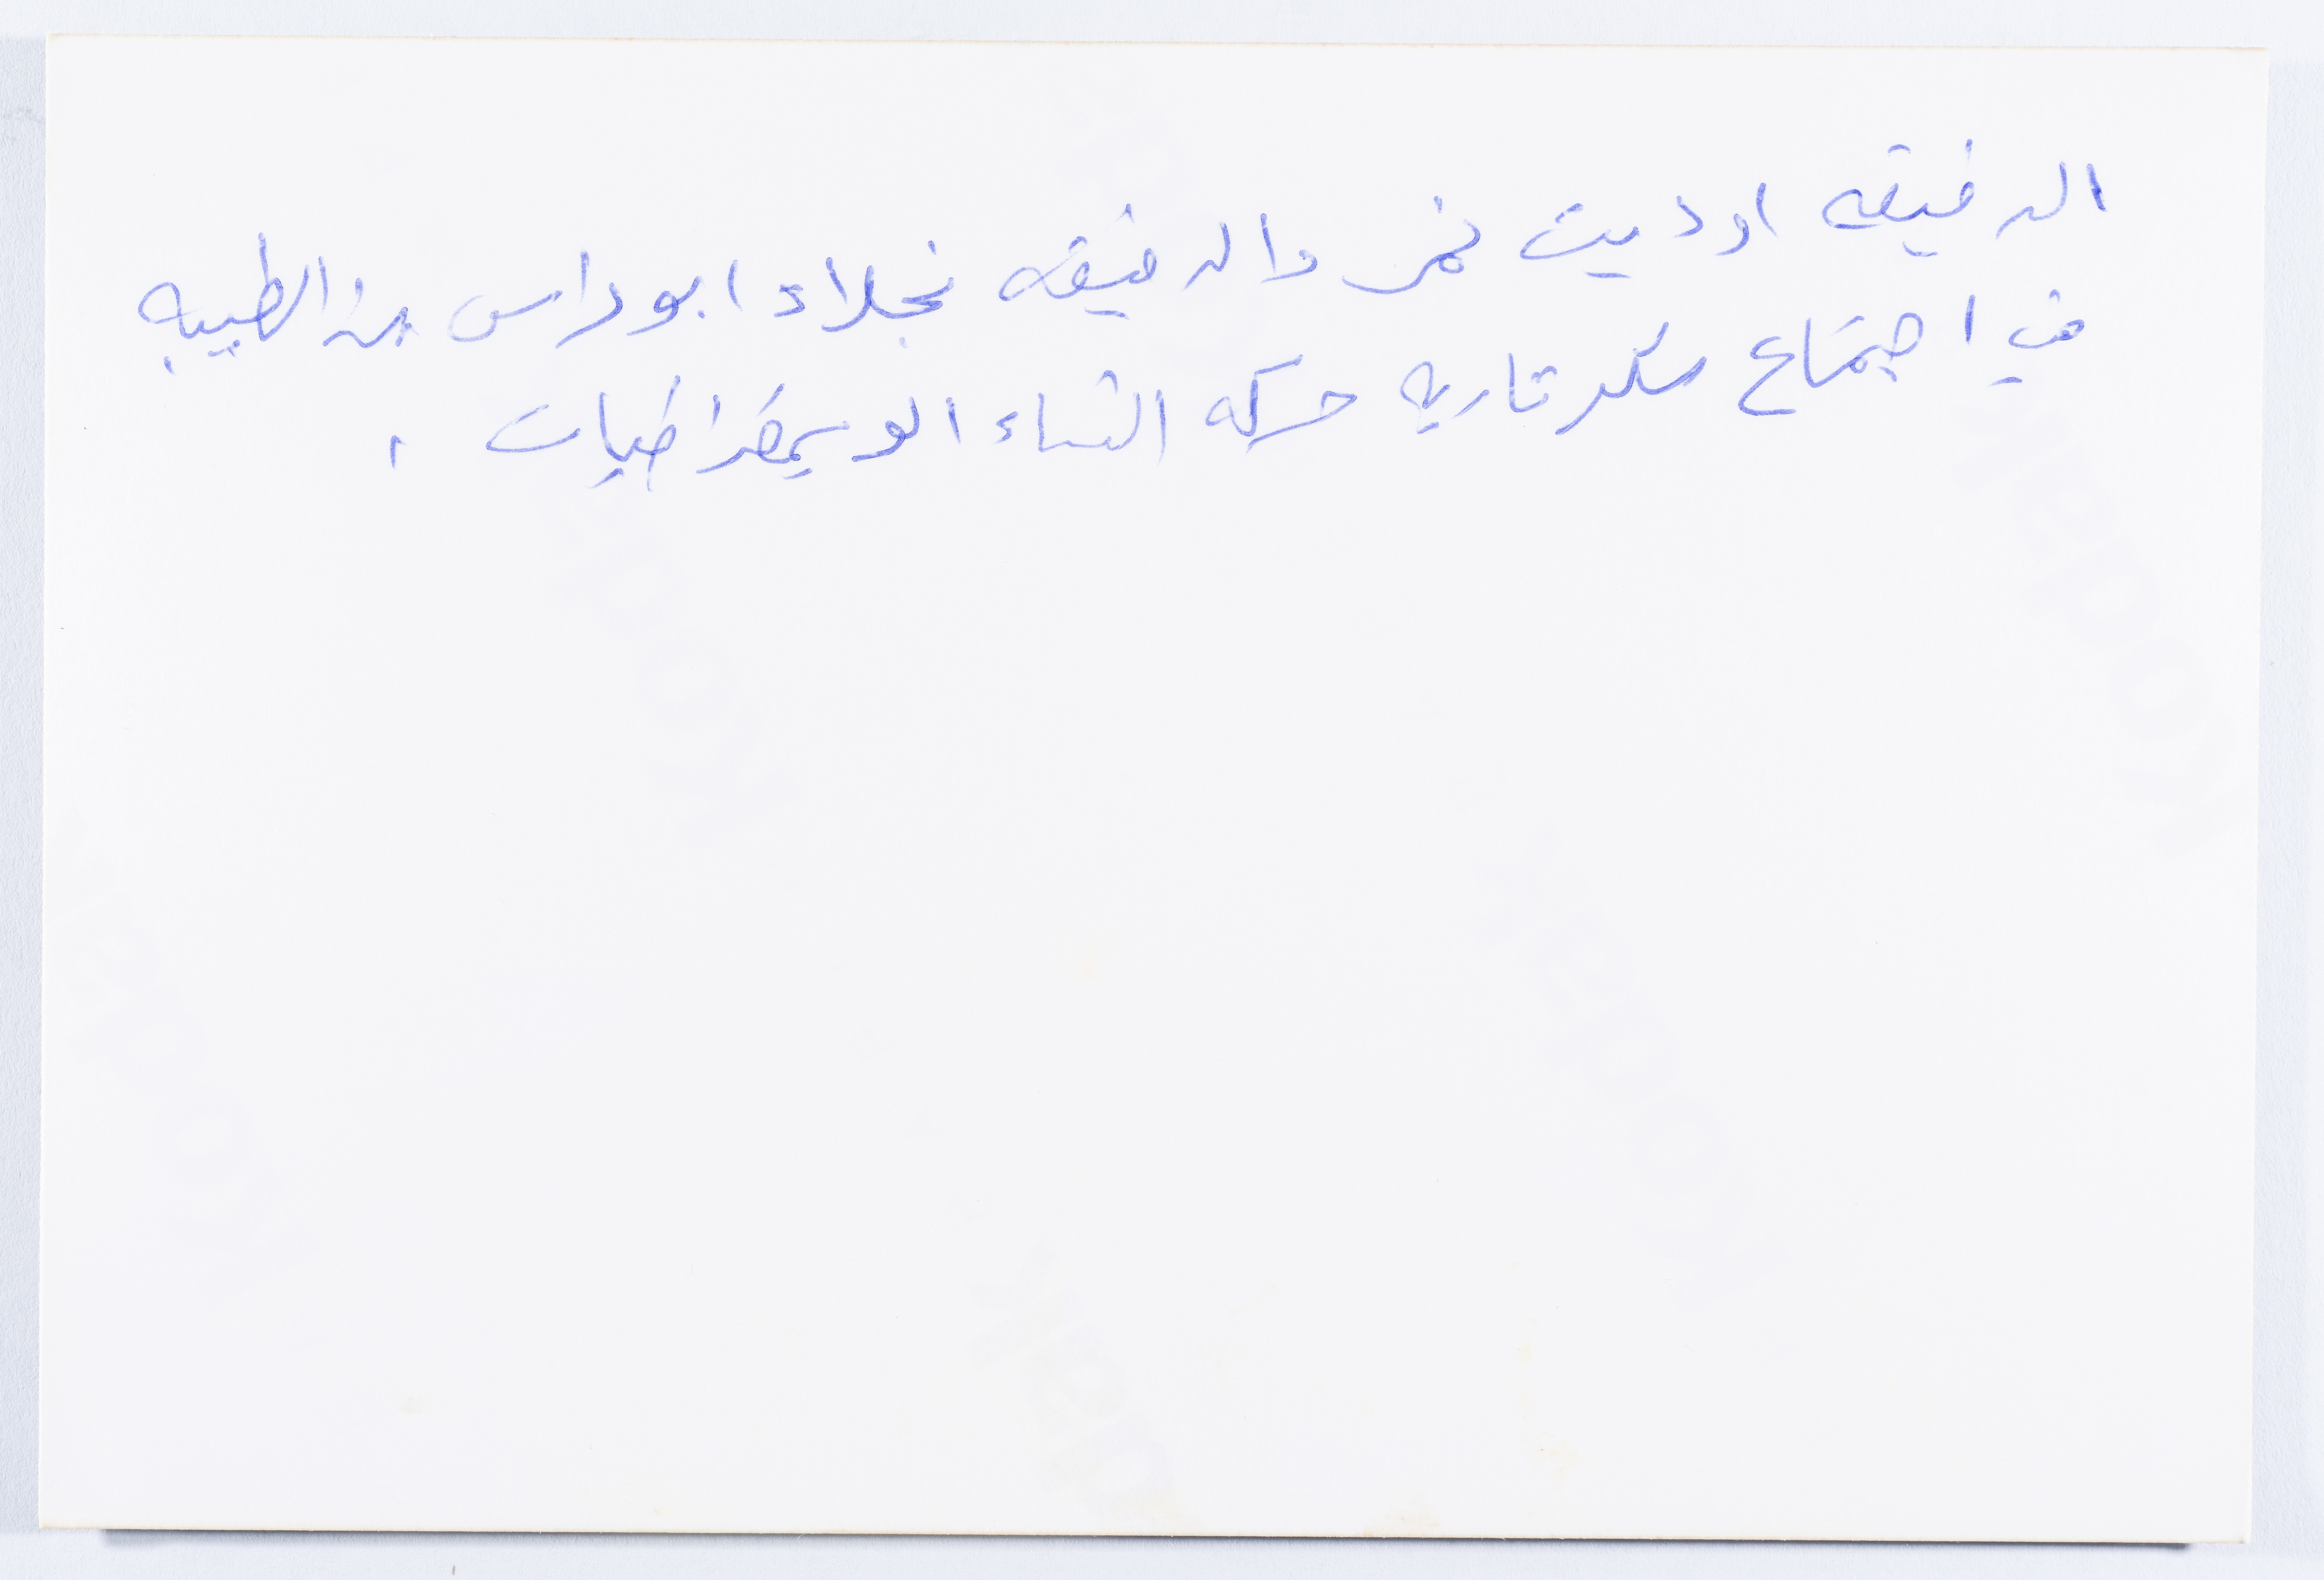 الرفيقه اوديت نمر والرفيقه نجلاء ابو راس من الطيبه
في اجتماع سكرتاريه حركه النساء الديمقراطيات .